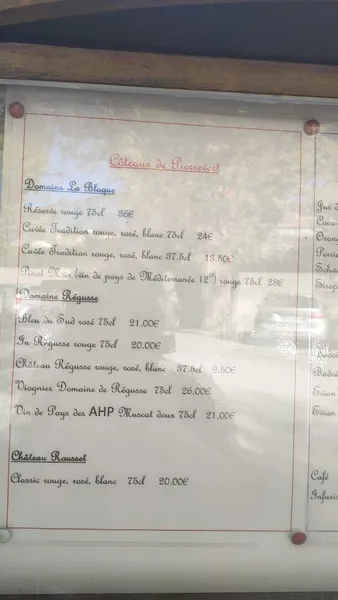 Côteaux de Pierrevert
Domaine La Blaque
Réserve rouge 75cl 36€
Cuvée Tradition rouge, rosé, blanc 75cl 24€
Cuvée Tradition rouge, rosé, blanc 37.5cl 13.50€
Pinot Noir (vin de pays de Méditerranée 12°) rouge 75cl 28€
Domaine Régusse
Bleu du Sud rosé 75cl 21.00€
In Régusse rouge 75cl 20.00€
Château Régusse rouge, rosé, blanc 37.5cl 9.50€
Viognier Domaine de Régusse 75cl 26.00€
Vin de Pays des AHP Muscat doux 75cl 21.00€
Château Rousset
Classic rouge, rosé, blanc 75cl 20.00€
Jus d
Coca-
Orang
Perrie
Schw
Sirop
Badoi
Badoi
Evian
Evian
Café
Infusio